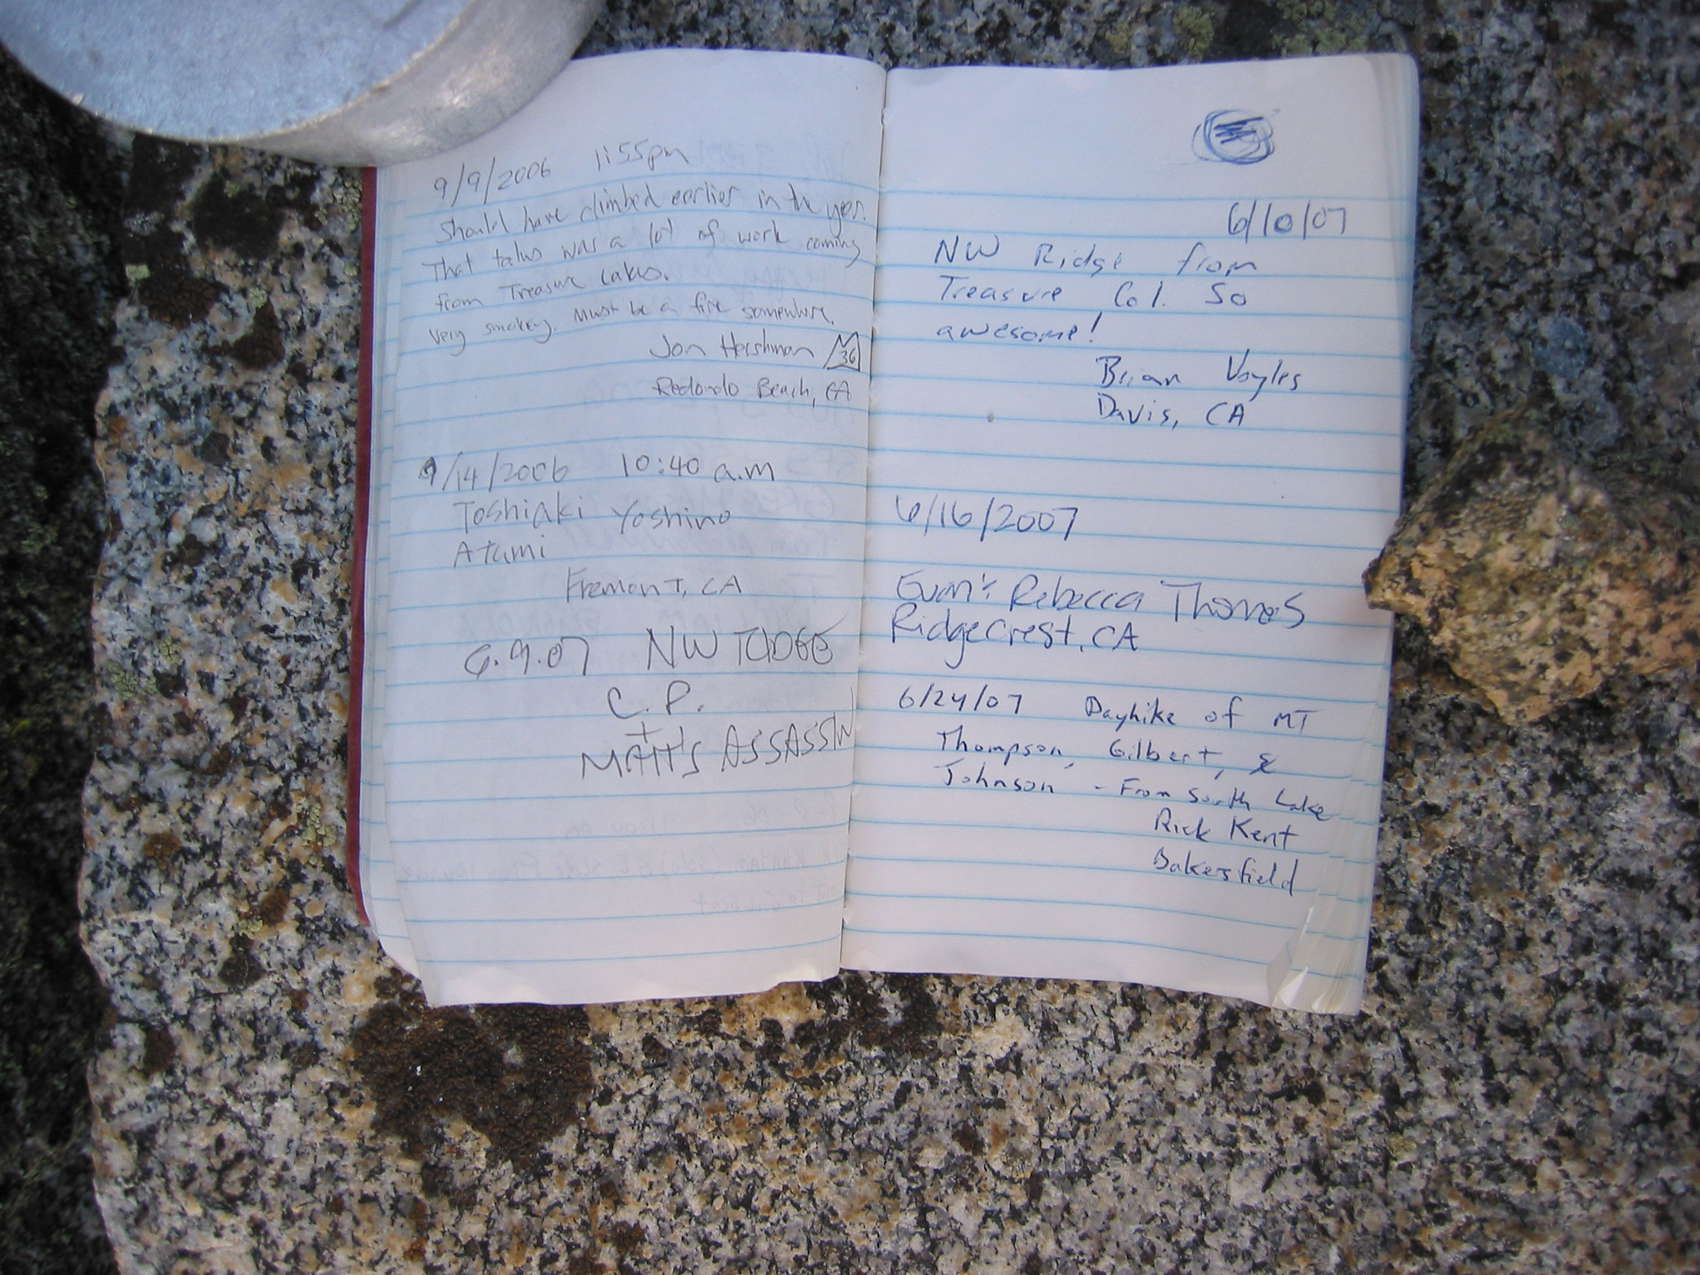 9/9/2006 1:55pm
Should have climbed earlier in the year.
That talus was a lot of work coming
from Treasure Lakes.
Very smokey. Must be a fire somewhere.
Jon Hershman 36
Redondo Beach, CA
9/14/2006 10:40 a.m
Toshiaki Yoshino
Atumi
Fremont, CA
6.9.07 NW
C.P.
+
MATT'S ASSASSIN
6/10/07
NW Ridge from
Treasure Col. So
awesome!
Brian Voyles
Davis, CA
6/16/2007
Evan & Rebecca Thomas
Ridgecrest, CA
6/24/07 Dayhike of MT
Thompson, Gilbert, &
Johnson - From South Lake
Rick Kent
Bakersfield